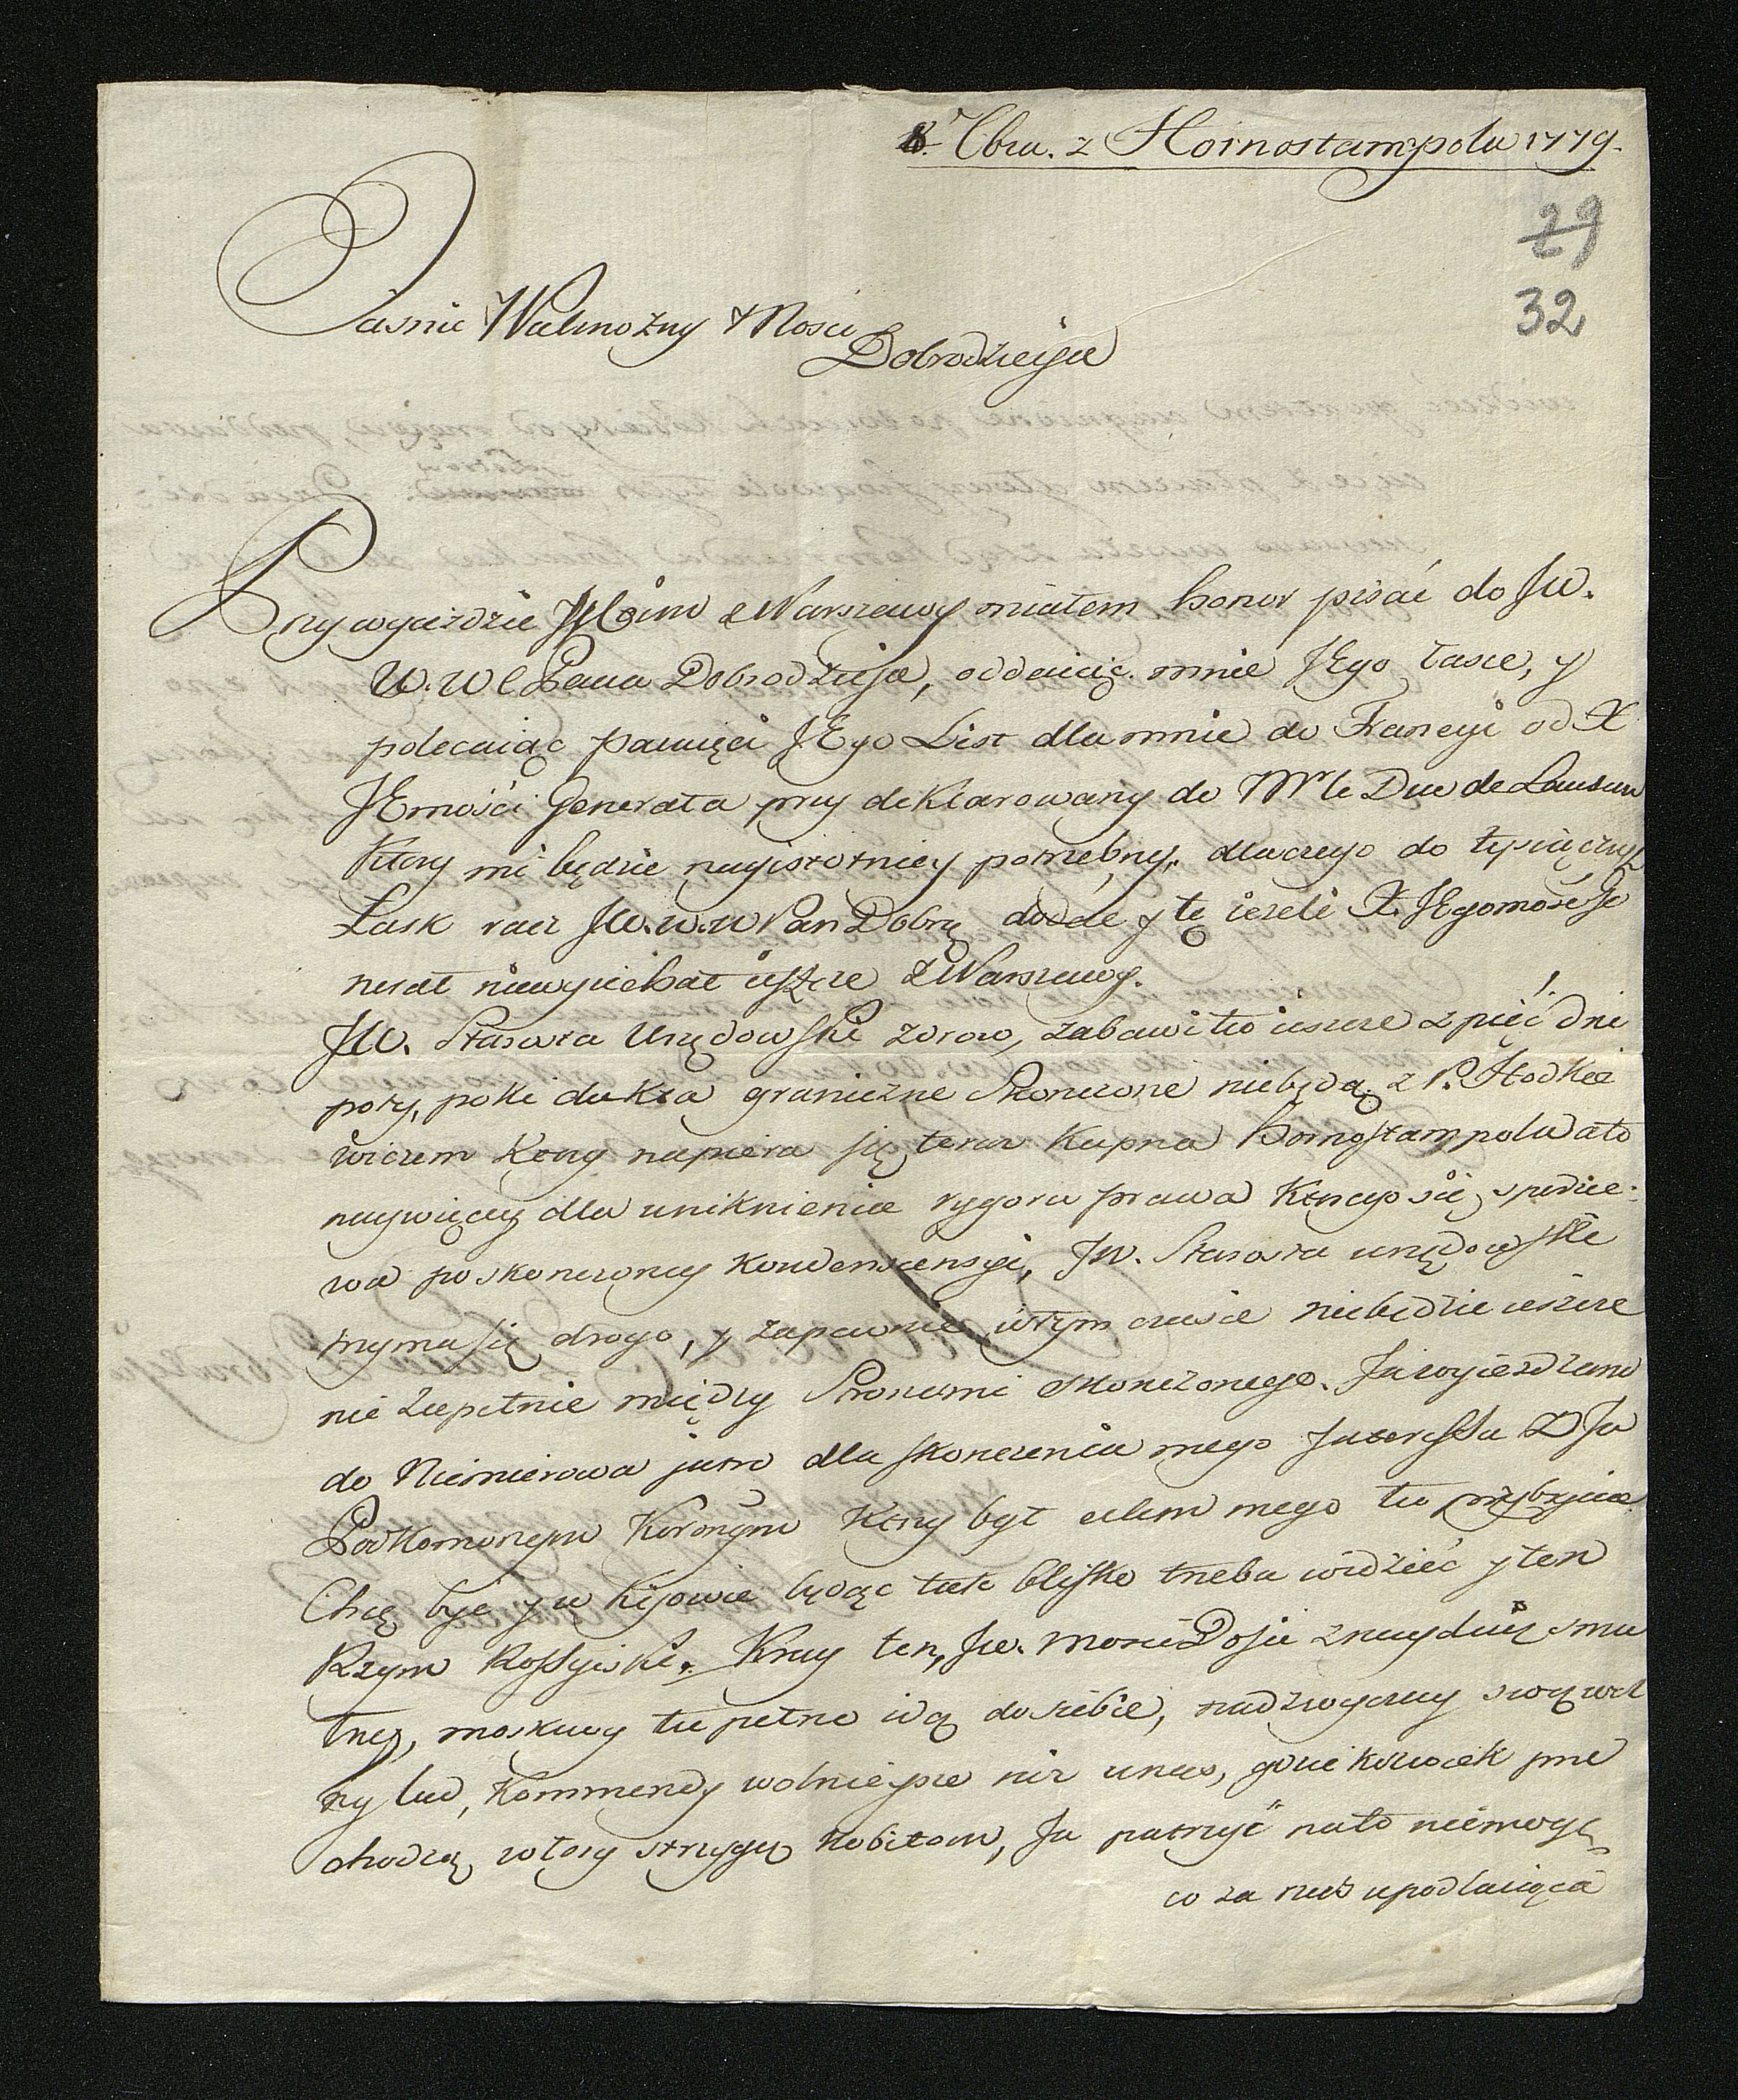 8. 7bra. z Hornostampola 1779.
29
32
Jasnie Wielmozny Mosci
Dobrodzieju
Przy wyiezdzie moim z Warszawy miałem honor pisać do JW.
W. W. Pana Dobrodzieja, oddaiąc mnie JEgo łasce, y
polecaiąc pamięci JEgo List dla mnie do Francyi od X
JEmości Generała przydeklarowany do Mr le Duc de Lauzun
Ktory mi będzie nayistotniey potrzebny, dlaczego do tysiącznych
Łask racz JW. W. W Pan Dobrź dodać y tę ieżeli X. JEgomość Je
nerał niewyiechał ieszcze z Warszawy.
JW. Starosta Urzędowski zdrow, zabawi tu ieszcze z pięć dni
poty, poki dukta graniczne skonczone niebędą z P. Hodkie
wiczem Ktory napiera się teraz kupna Hornostampola ato
naywięcey dla uniknienia rygoru prawa Ktorego się spodzie-
wa po skonczoney kondescensyi, JW. Starosta urzędowski
trzyma się drogo, y zapewnie wtym czasie niebędzie ieszcze
nic zupełnie między Stronami skonczonego. Ja wyiezdzam
do Niemierowa jutro dla skonczenia mego Interessu z JW
Podkomorzym Koronnym Ktory był celem mego tu przybycia
Chcę być y w Kijowie będąc tak blisko trzeba widzieć y ten
Rzym Rossyiski. Kray ten, JW. Mosci Dojiu znayduię smu
tny, moskwy tu pełno idą do siebie, nadzwyczay swąwol
ny lud, Kommendy wolnieysze niz unas, gdzie kolwiek prze
chodzą włosy strzygą kobietom, Ja patrzyć nato niemogę
co za nas upodlaiąca